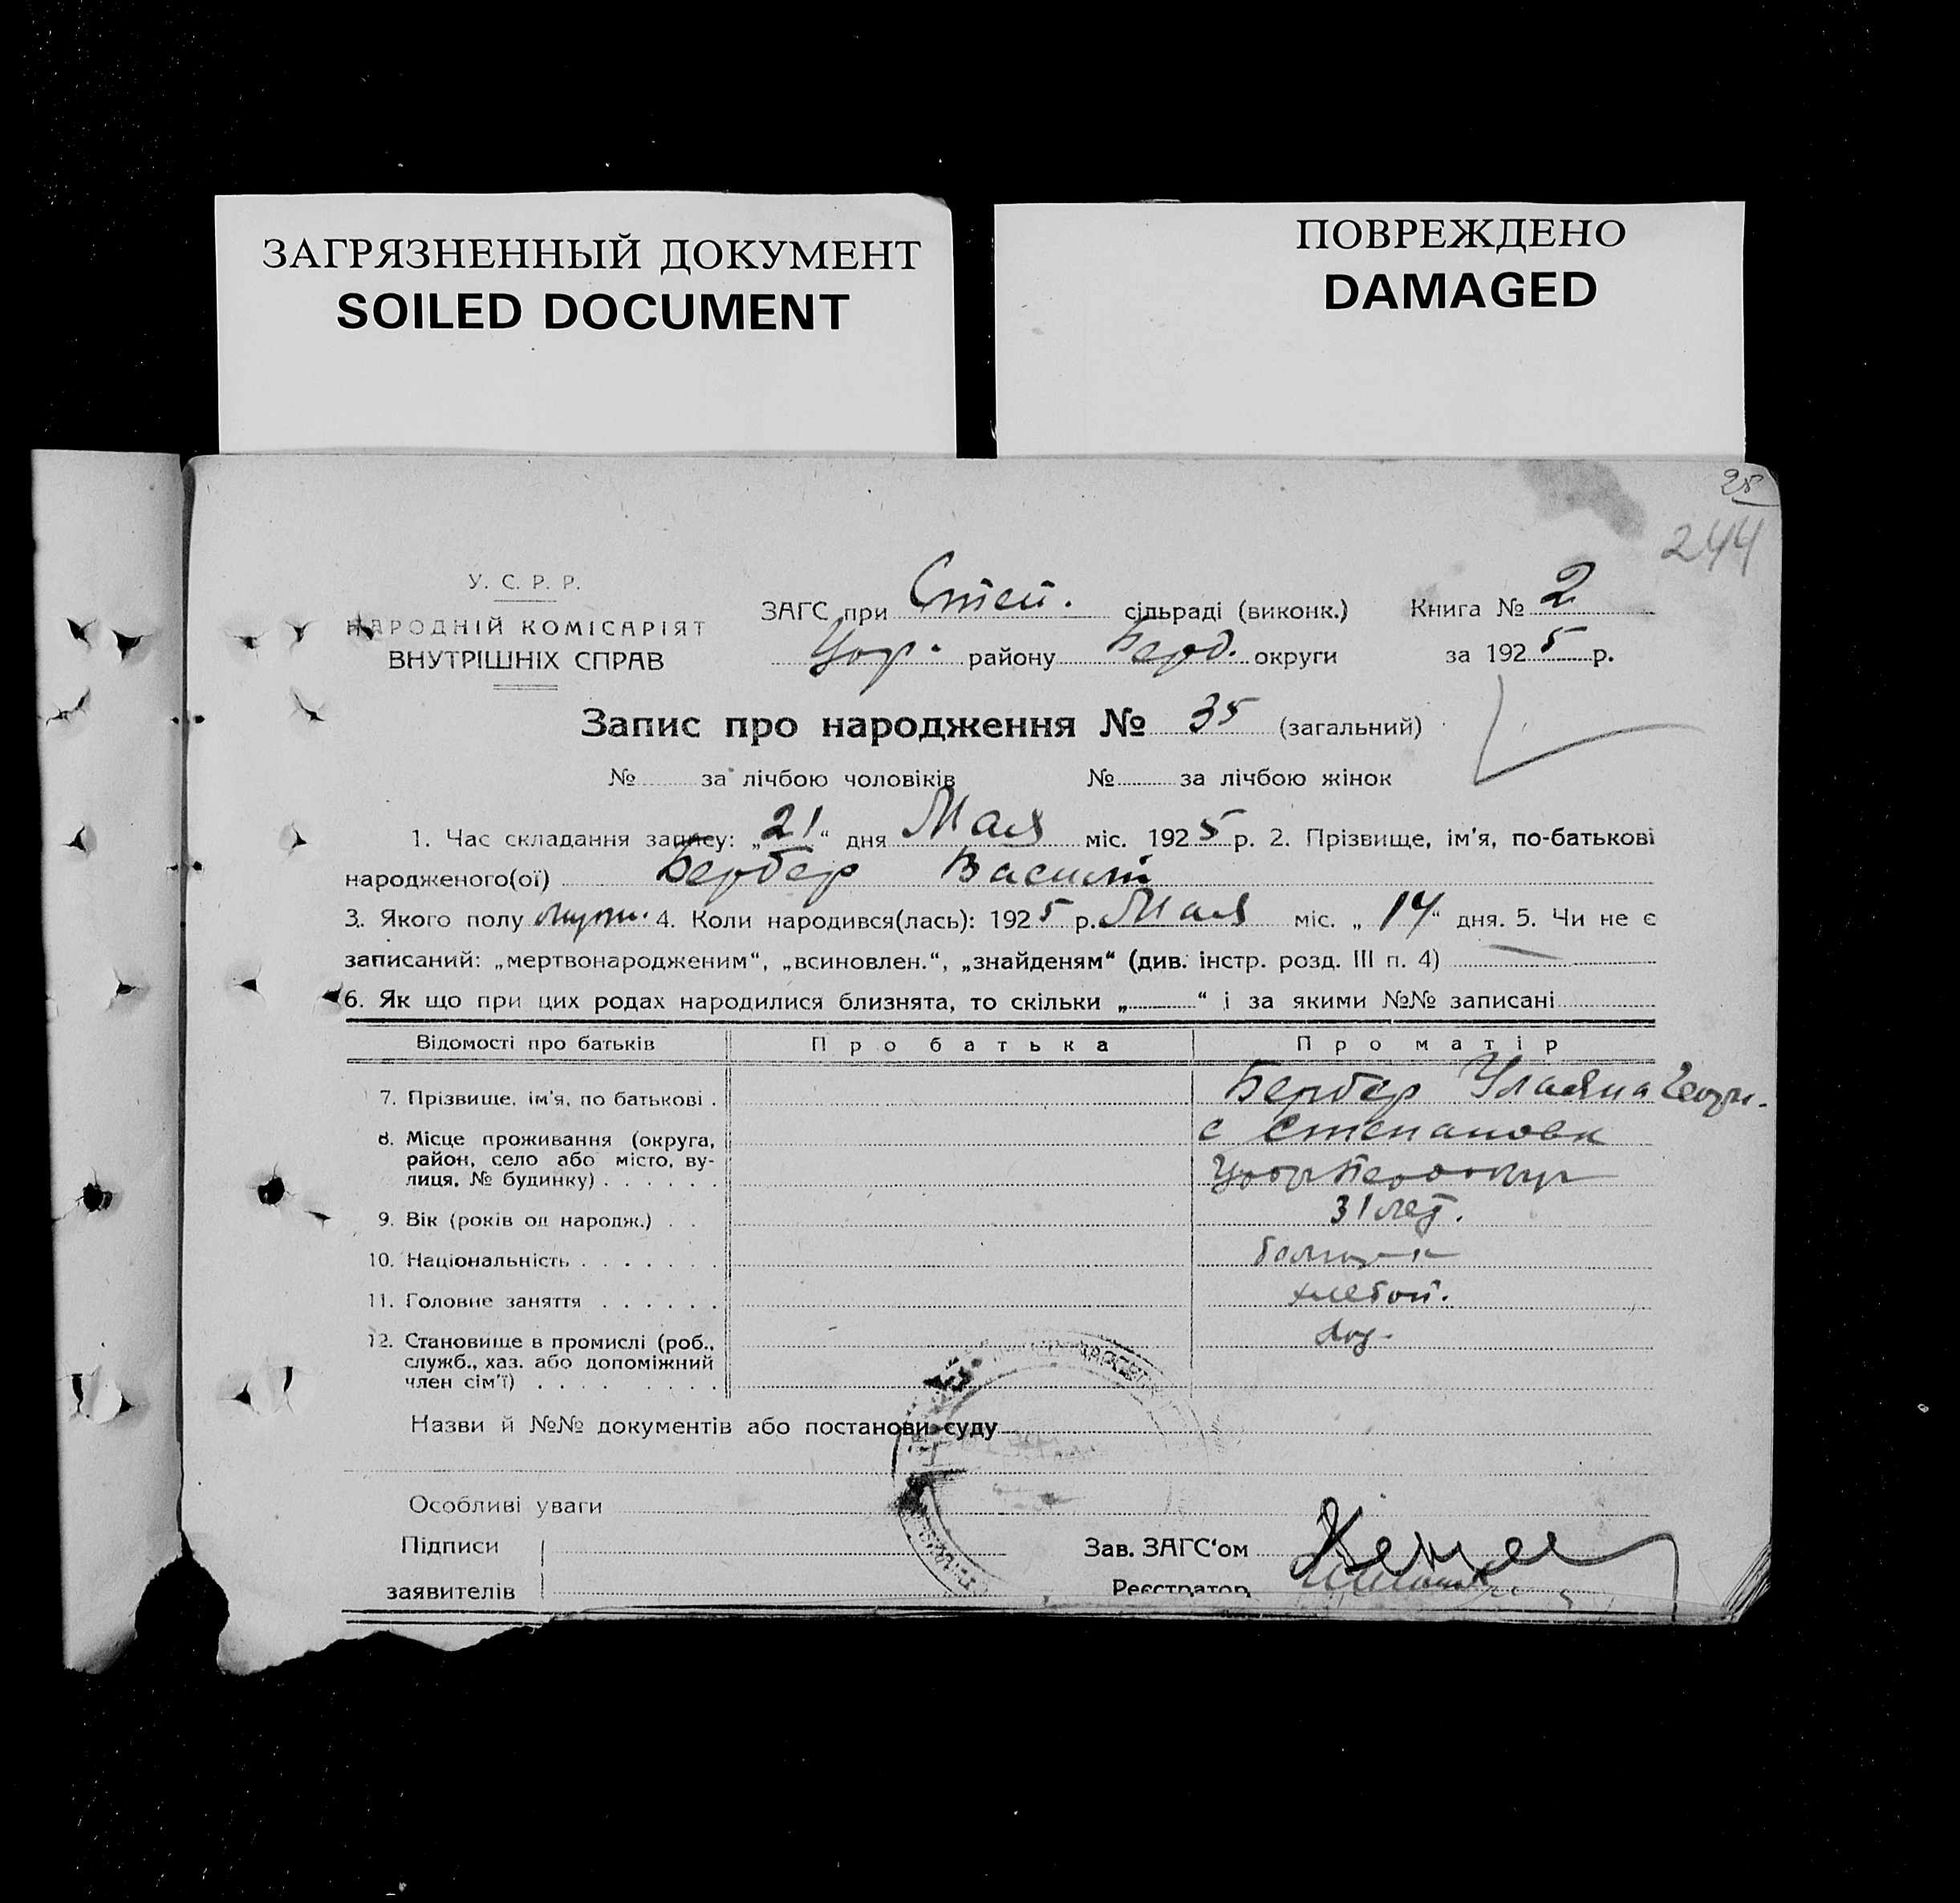 ЗАГРЯЗНЕННЫЙ ДОКУМЕНТ
SOILED DOCUMENT
ПОВРЕЖДЕНО
DAMAGED
25
244
У. С. Р. Р.
НАРОДНІЙ КОМІСАРІЯТ
ВНУТРІШНІХ СПРАВ
ЗАГС при Степ. сільраді (виконк.) Книга № 2
району Берд. округи за 1925 р.
Запис про народження № 35 (загальний)
№ за лічбою чоловіків № за лічбою жінок
1. Час складання запису: „21“ дня Мая міс. 1925 р. 2. Прізвище, ім'я, по-батькові
народженого(ої) Бербер
3. Якого полу 4. Коли народився(лась): 1925 р. Мая міс. „14“ дня. 5. Чи не є
записаний: „мертвонародженим“, „всиновлен.“, „знайденям“ (див. інстр. розд. III п. 4) —
6. Як що при цих родах народилися близнята, то скільки „ “ і за якими №№ записані
Відомості про батьків Про батька Про матір
7. Прізвище, ім'я, по батькові . Бербер Ульяна
8. Місце проживання (округа, с Степановк
район, село або місто, ву-
лиця, № будинку) . . . . . .
9. Вік (років од народж.) . . 31 лет.
10. Національність . . . . . . .
11. Головне заняття . . . . . . хлебоп.
12. Становище в промислі (роб.,
служб., хаз. або допоміжний
член сім'ї) . . . . . . . . .
Назви й №№ документів або постанови суду
Особливі уваги
Підписи Зав. ЗАГС'ом
заявителів Реєстратор